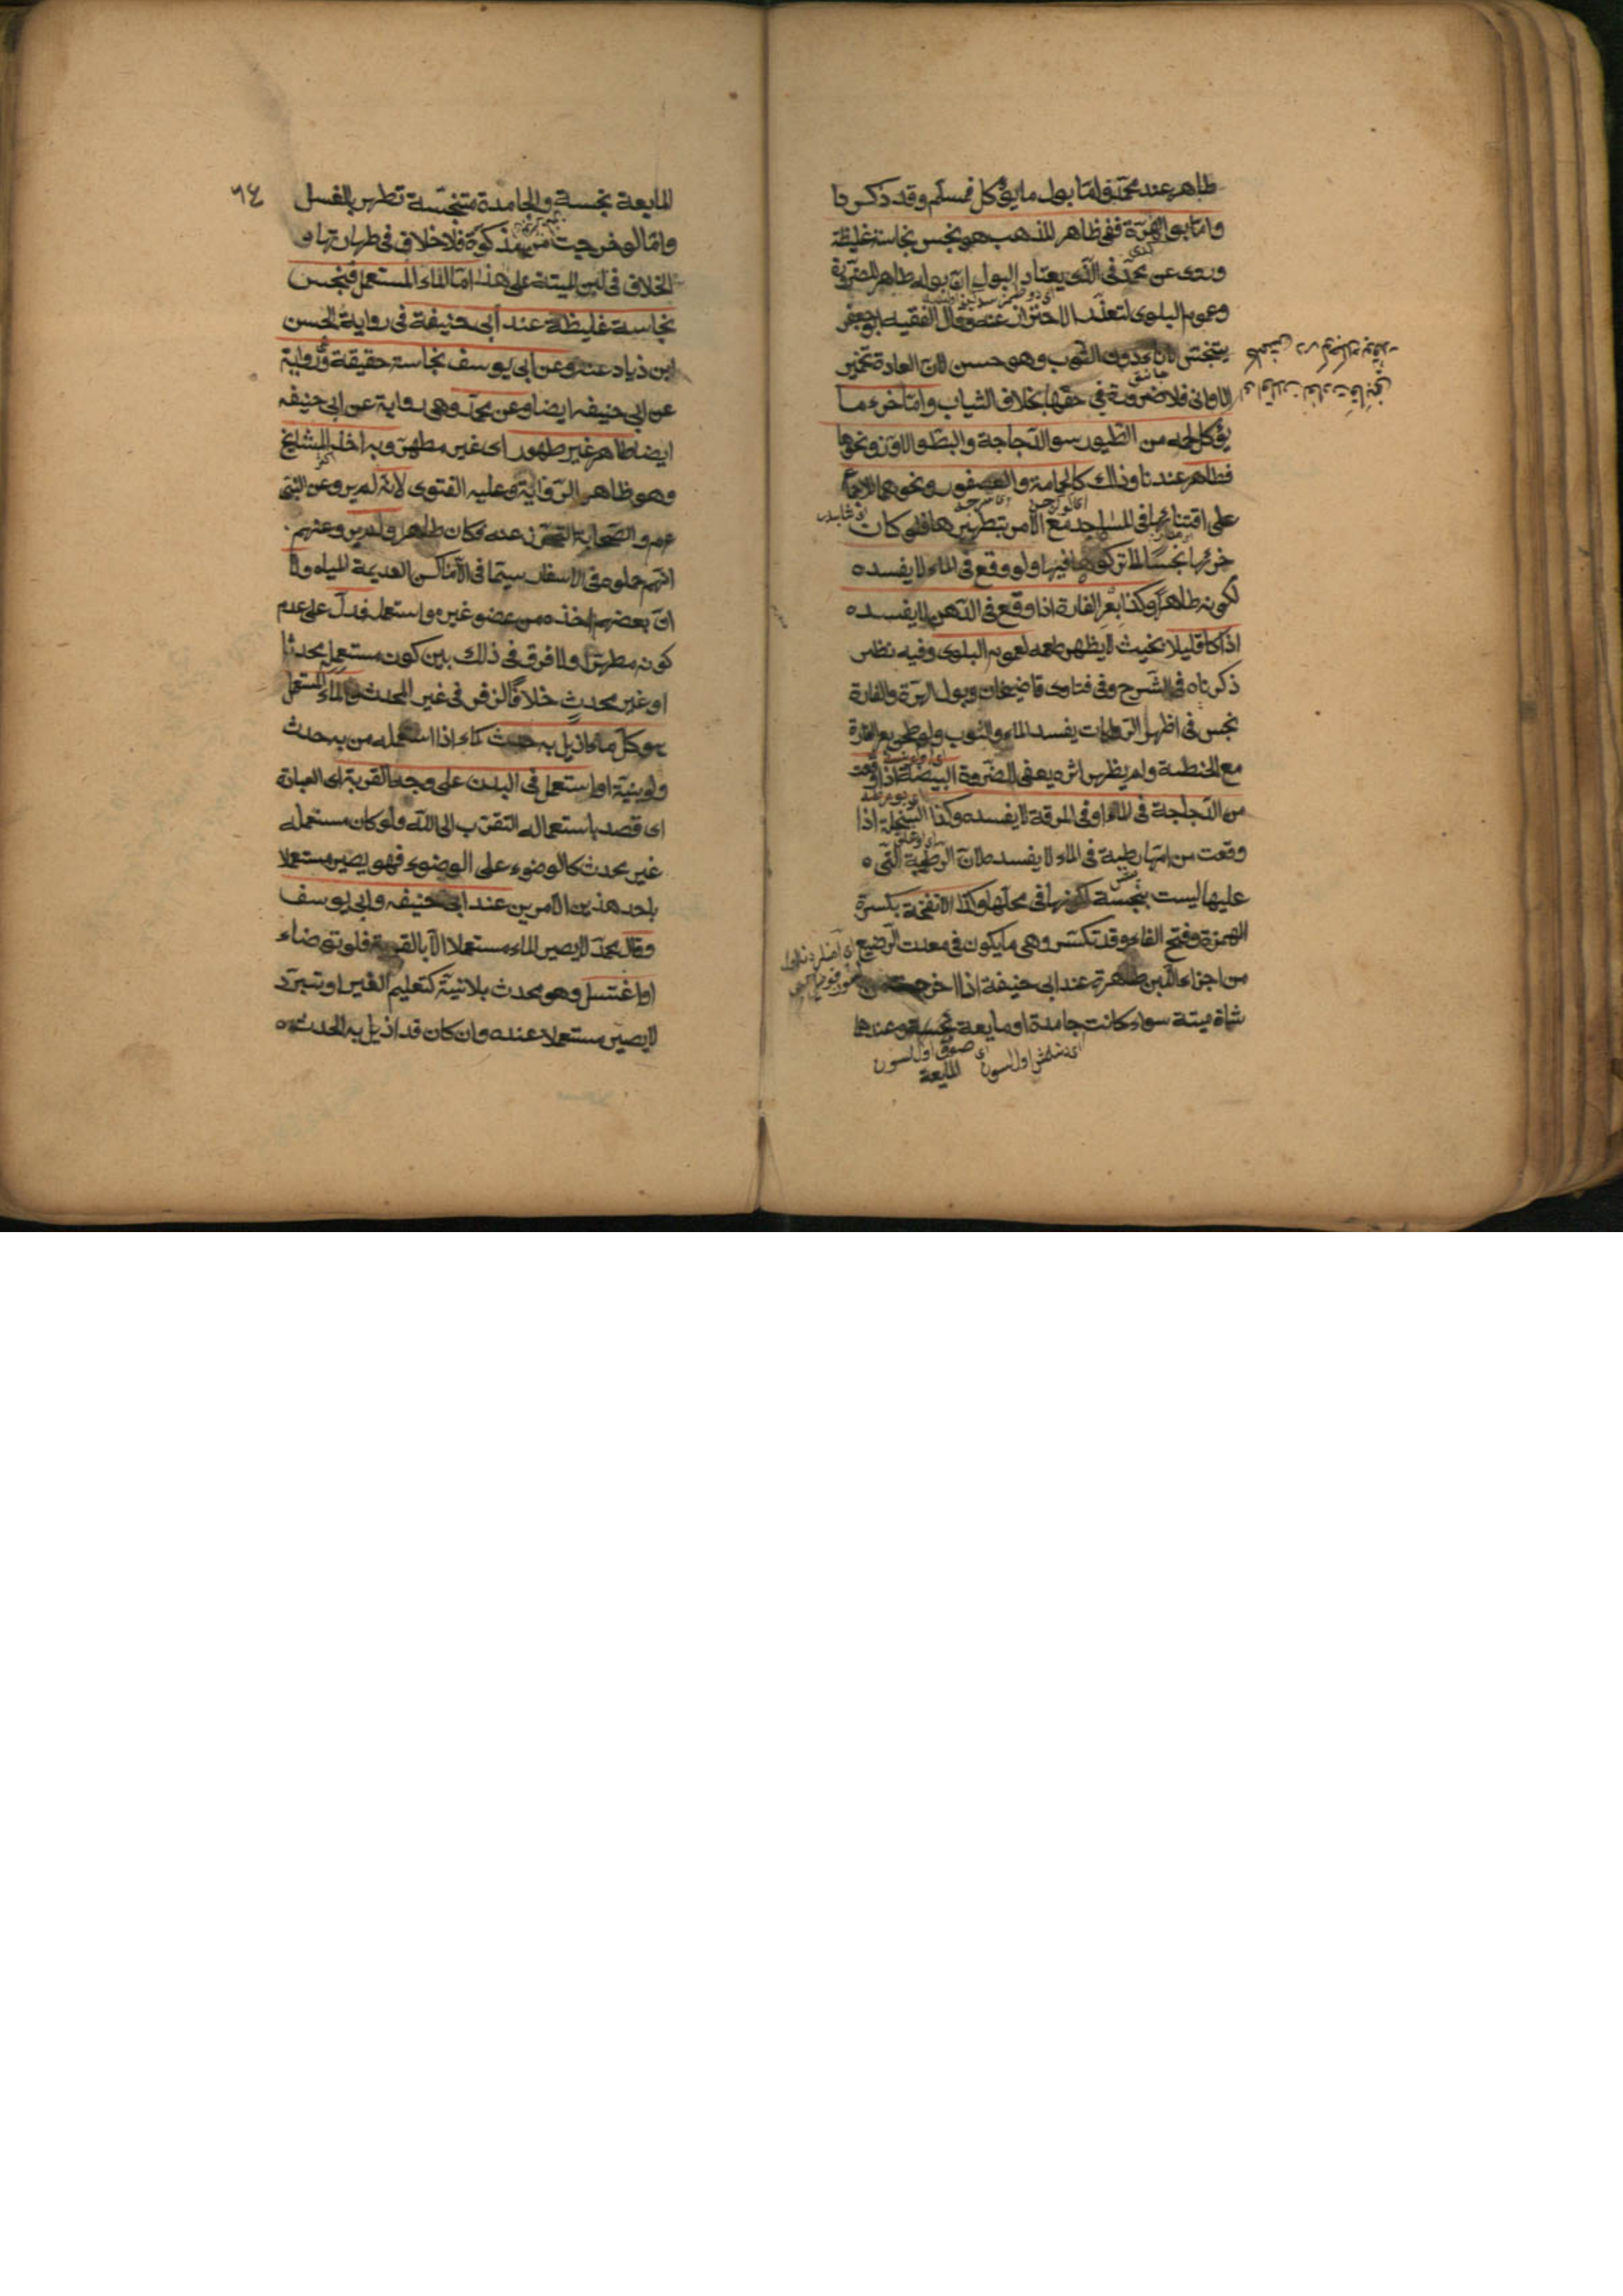 طاهر عند محمد واما بول ما يؤكل فمسلم وقد ذكرنا
واما بول الهرة ففى ظاهر المذهب هو نجس نجاسة غليظة
وروى عن محمد فى الذى يعتاد البول ان بوله طاهر للضرورة
وعموم البلوى لتعذر الاحتراز عنه وقال الفقيه ابو جعفر
يتنجس الاناء دون الثوب وهو حسن لان العادة تخمير
الاوانى فلا ضرورة فى حقها بخلاف الثياب واما خرء ما
يؤكل لحمه من الطيور سوى الدجاجة والبط والاوز ونحوها
فطاهر عندنا وذلك كالحمامة والعصفور ونحوهما للاجماع
على اقتنائها فى المساجد مع الامر بتطهيرها فلو كان
خرئها نجسا لما تركوها فيها ولو وقع فى الماء لا يفسده
لكونه طاهرا وكذا بعر الفارة اذا وقع فى الدهن لا يفسده
اذا كان قليلا بحيث لا يظهر طعمه لعموم البلوى وفيه نظر
ذكرناه فى الشرح وفى فتاوى قاضيخان وبول الهرة والفارة
نجس فى اظهر الروايات يفسد الماء والثوب ولو طحن بعر الفارة
مع الحنطة ولم يظهر اثره يعفى للضرورة البيضة اذا وقعت
من الدجاجة فى الماء او فى المرقة لا يفسده وكذا السخلة اذا
وقعت من امها رطبة فى الماء لا يفسده لان الرطوبة التى
عليها ليست بنجسة لكونها فى محلها وكذا الانفحة بكسرة
الهمزة وفتح الفاء وقد تكسر وهى ما يكون فى معدة الرضيع
من اجزاء اللبن طاهرة عند ابى حنيفة اذا اخرجت من
شاة ميتة سواء كانت جامدة او مايعة نجسة وعندهما
المايعة
٦٤
المايعة نجسة والجامدة متنجسة تطهر بالغسل
واما لو خرجت من مذكوة فلا خلاف فى طهارتها و
الخلاف فى لبن الميتة على هذا اما الماء المستعمل فنجس
نجاسة غليظة عند أبى حنيفة فى رواية الحسن
ابن زياد عنه وعن ابى يوسف نجاسته حقيقة ورواية
عن ابى حنيفه ايضا وعن محمد وهى رواية عن ابى حنيفه
ايضا طاهر غير طهور اى غير مطهر وبه اخذ المشايخ
وهو ظاهر الرواية وعليه الفتوى لانه لم يرو عن النبى
عم والصحابة التحرز عنه فكان طاهرا ولم يرو عنهم
انهم حملوه فى الاسفار سيما فى الاماكن العديمة المياه ولا
ان بعضهم اخذه من عضو غيره واستعمله فدل على عدم
كونه مطهرا ولا فرق فى ذلك بين كون مستعمله محدثا
او غير محدث خلافا لزفر فى غير المحدث والماء المستعمل
هو كل ماء ازيل به حدث كماء اذا استعمله من به حدث
ولو بنية او استعمل فى البدن على وجه القربة اى العبادة
اى قصد باستعماله التقرب الى الله ولو كان مستعمله
غير محدث كالوضوء على الوضوء فهو يصير مستعملا
باحد هذين الامرين عند ابى حنيفه وابى يوسف
وقال محمد لا يصير الماء مستعملا الا بالقربة فلو توضاء
او اغتسل وهو محدث بلا نية كتعليم الغير او تبرد
لا يصير مستعملا عنده وان كان قد ازيل به الحدث